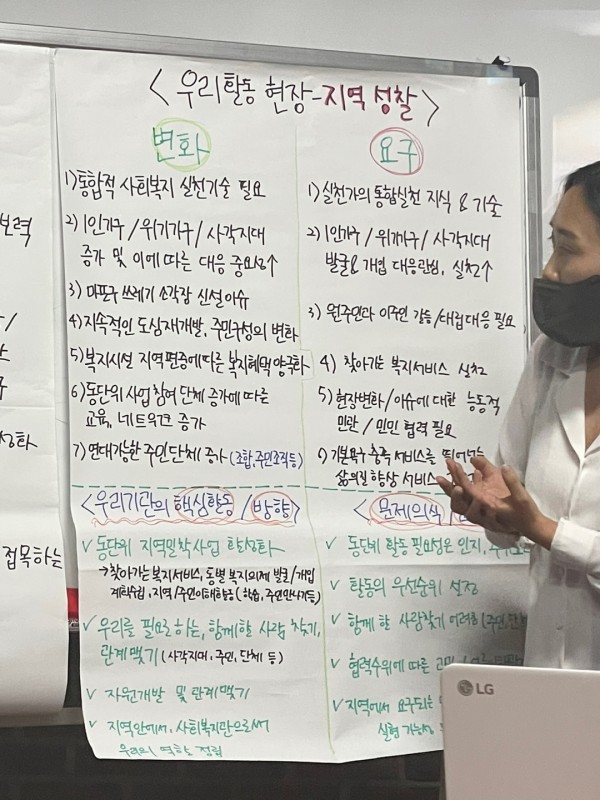 <우리활동 현장-지역 성찰>
변화
1) 통합적 사회복지 실천기술 필요
2) 1인가구/위기가구/사각지대
증가 및 이에 따른 대응 중요성↑
3) 마포구 쓰레기 소각장 신설이슈
4) 지속적인 도심재개발, 주민구성의 변화
5) 복지시설 지역편중에 따른 복지혜택 양극화
6) 동단위 사업 참여 단체 증가에 따른
교육, 네트워크 증가
7) 연대가능한 주민단체 증가 (조합, 주민조직 등)
<우리기관의 핵심활동/방향>
✓ 동단위 지역밀착사업 활성화
→ 찾아가는 복지서비스, 동별 복지의제 발굴/개입
계획수립, 지역/주민이해활동 (학습, 주민만나기 등)
✓ 우리를 필요로 하는, 함께할 사람 찾기,
관계맺기 (사각지대, 주민, 단체 등)
✓ 자원개발 및 관계맺기
✓ 지역안에서, 사회복지관으로써
우리의 역할 정립
요구
1) 실천가의 통합실천 지식 & 기술
2) 1인가구/위기가구/사각지대
발굴 & 개입 대응관법, 실천↑
3) 원주민과 이주민 갈등/대립대응 필요
4) 찾아가는 복지서비스 실천
5) 현장변화/이슈에 대한 능동적
민관/민민 협력 필요
6) 기본욕구 충족 서비스를 뛰어넘는
삶의질 향상 서비스
<문제의식
✓ 동단위 활동 필요성은 인지,
✓ 활동의 우선순위 설정
✓ 함께 할 사람찾기 어려움 (주민, 단체
✓ 협력수위에 따른 고민
✓ 지역에서 요구되는
실험 가능성
보력
성화
접목하는
LG